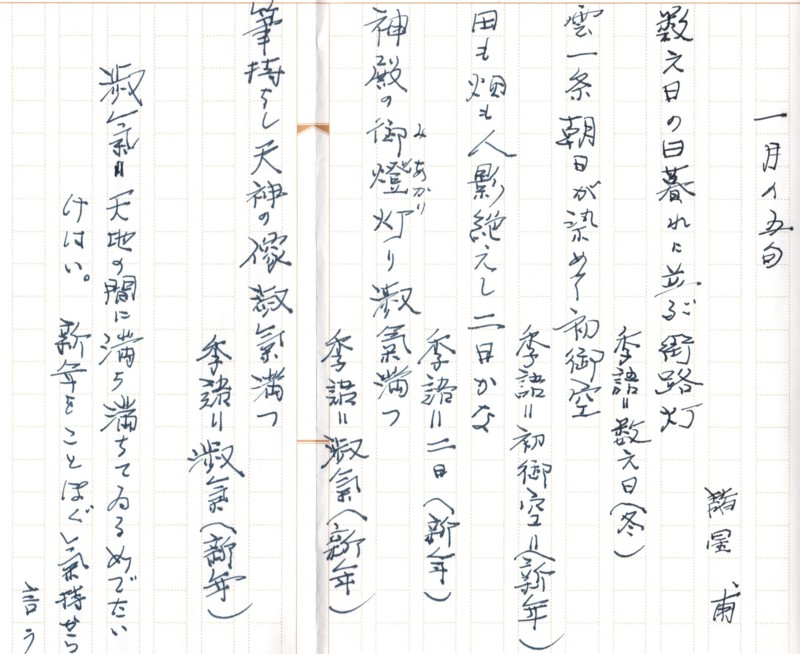 一月の五句
諸星　甫
数え日の日暮れに並ぶ街路灯
季語=数え日(冬)
雲一条朝日が染めて初御空
季語=初御空=(新年)
田も畑も人影絶えし二日かな
季語=二日(新年)
みあかり
神殿の御燈灯り淑氣満つ
季語=淑氣(新年)
筆持ちし天神の像淑氣満つ
季語=淑氣(新年)
淑氣=天地の間に満ち満ちてゐるめでたい
けはい。新年をことほぐ氣持
言う